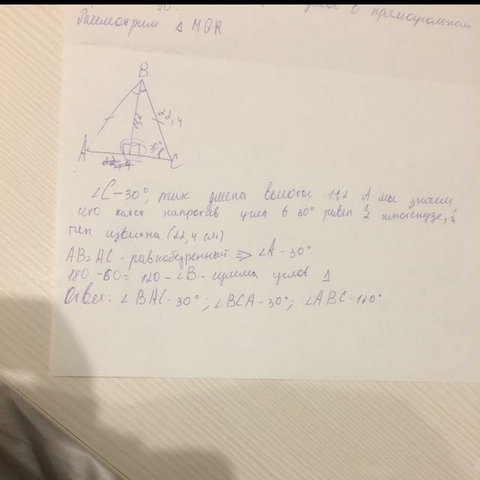 в прямоугольном
Рассмотрим △ MQR
B
22,4
11,2
A
30°
C
∠C-30°, так длина высоты 11,2. А мы знаем,
что катет напротив угла в 30° равен 1/2 гипотенузе, а
гип известна (22,4 см)
AB=AC-равнобедренный => ∠A-30°
180-60=120-∠B-сумма углов △
Ответ: ∠BAC-30°; ∠BCA-30°; ∠ABC-120°